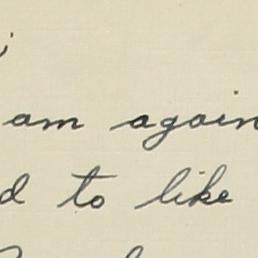 am again
d to like